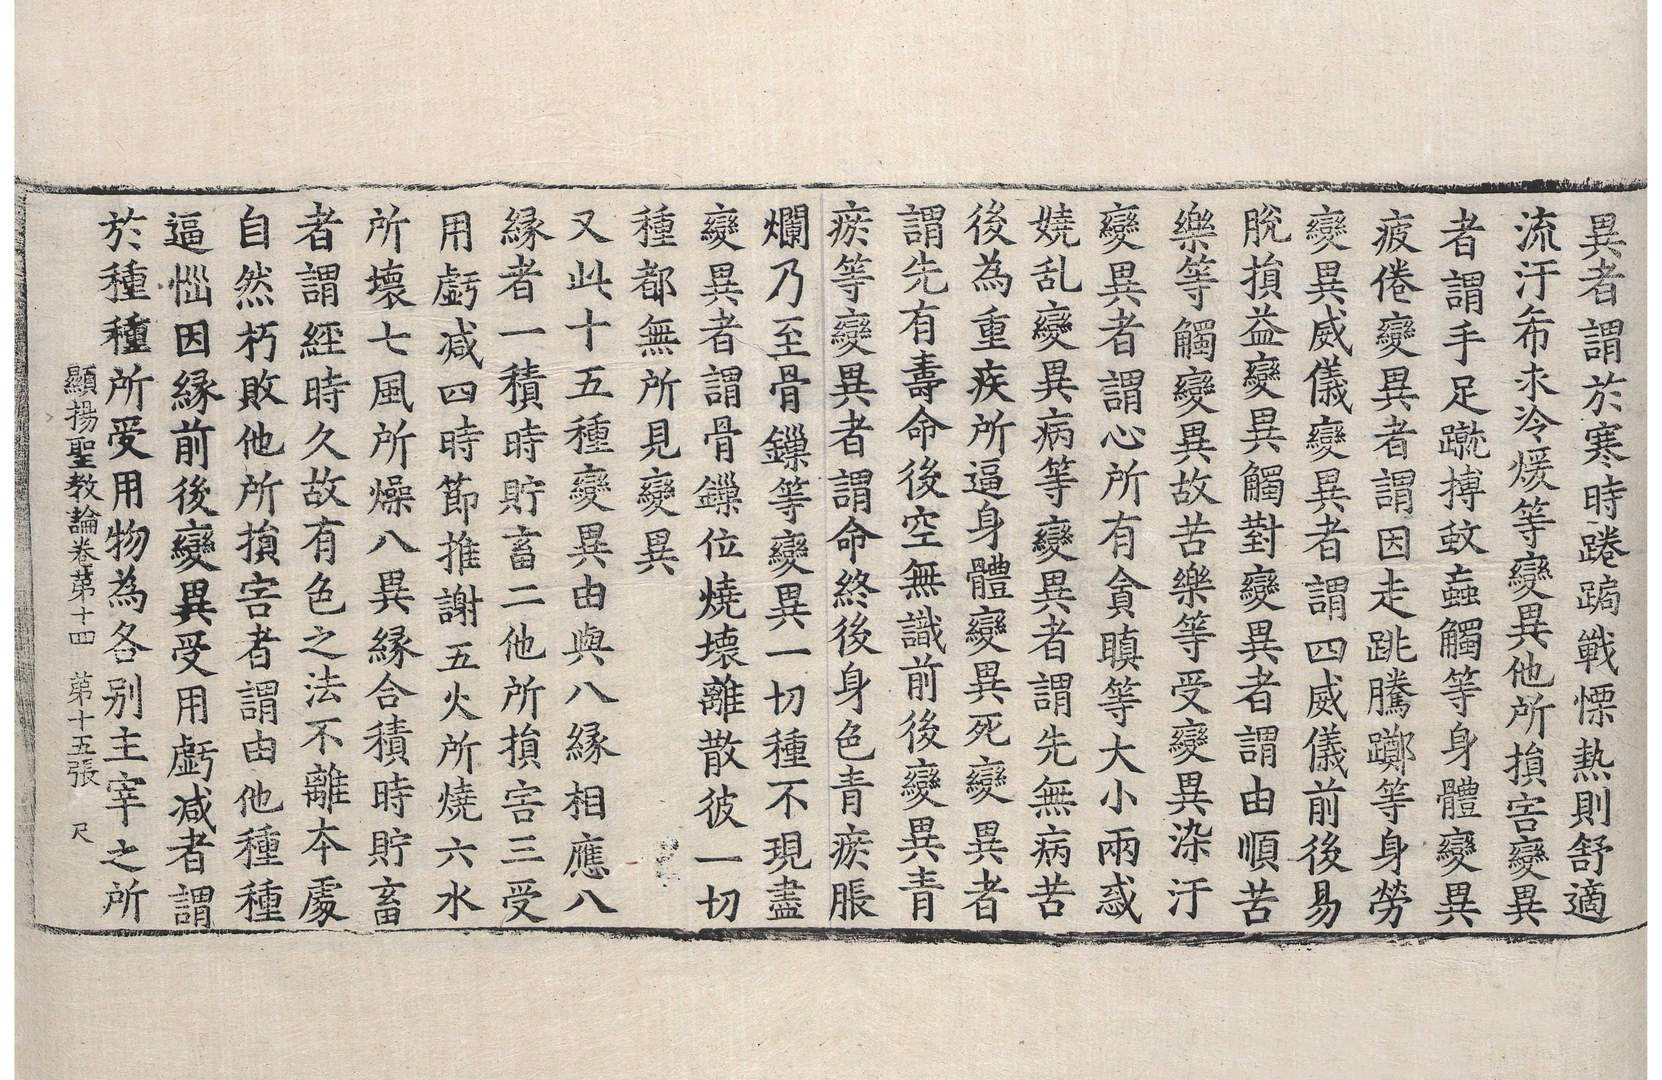 異者謂於寒時踡跼戰慄熱則舒適
流汗希求冷煖等變異他所損害變異
者謂手足蹴搏蚊蝱觸等身體變異
疲倦變異者謂因走跳騰躑等身勞
變異威儀變異者謂四威儀前後易
脫損益變異觸對變異者謂由順苦
樂等觸變異故苦樂等受變異染汙
變異者謂心所有貪瞋等大小兩惑
嬈乱變異病等變異者謂先無病苦
後為重疾所逼身體變異死變異者
謂先有壽命後空無識前後變異青
瘀等變異者謂命終後身色青瘀脹
爛乃至骨鏁等變異一切種不現盡
變異者謂骨鏁位燒壞離散彼一切
種都無所見變異
又此十五種變異由與八緣相應八
緣者一積時貯畜二他所損害三受
用虧減四時節推謝五火所燒六水
所壞七風所燥八異緣合積時貯畜
者謂經時久故有色之法不離本處
自然朽敗他所損害者謂由他種種
逼惱因緣前後變異受用虧減者謂
於種種所受用物為各別主宰之所
顯揚聖教論卷第十四　第十五張　尺